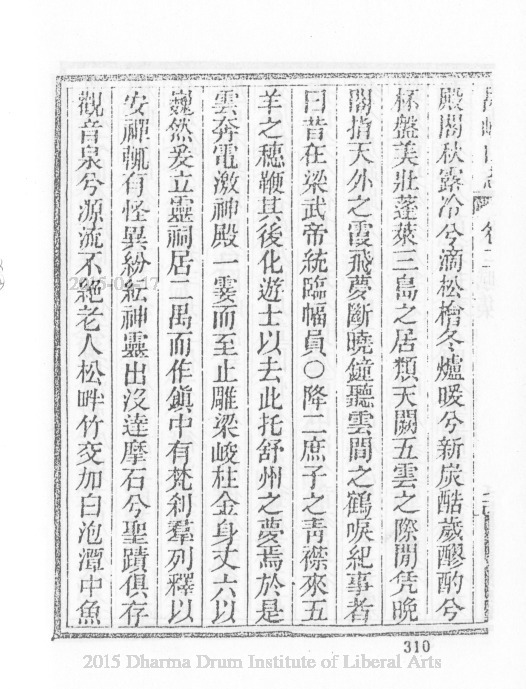 殿閣秋露冷兮滴松檜冬爐暖兮新炭酷歲醪酌兮
杯盤美壯蓬萊三島之居類天闕五雲之際閒凭晚
閣指天外之霞飛夢斷曉鐘聽雲間之鶴唳紀事者
曰昔在梁武帝統臨幅員〇降二庶子之青襟來五
羊之穗鞭其後化遊士以去此托舒州之夢焉於是
雲奔電激神殿一霎而至止雕梁峻柱金身丈六以
巍然爰立靈祠居二禺而作鎮中有梵刹羣列釋以
安禪輒有怪異紛紜神靈出沒達摩石兮聖蹟俱存
觀音泉兮源流不絕老人松畔竹交加白泡潭中魚
310
2015 Dharma Drum Institute of Liberal Arts